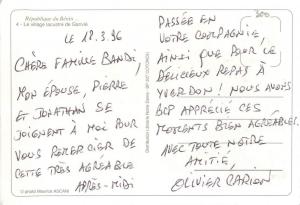 République du Bénin
4 - Le village lacustre de Ganvié
LE 18.3.96
CHÈRE FAMILLE BANDI,
MON ÉPOUSE, PIERRE
ET JONATHAN SE
JOIGNENT À MOI POUR
VOUS REMERCIER DE
CETTE TRÈS AGRÉABLE
APRÈS-MIDI
© photo Maurice ASCANI
PASSÉE EN
VOTRE COMPAGNIE,
AINSI QUE POUR LE
DÉLICIEUX REPAS À
YVERDON! NOUS AVONS
BCP APPRÉCIÉ CES
MOMENTS BIEN AGRÉABLES.
AVEC TOUTE NOTRE
AMITIÉ,
OLIVIER CARION